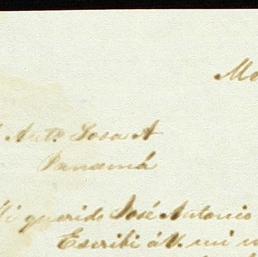 Ma
Anto. Sosa A
Panamá
Mi querido José Antonio
Escribí á V. mi